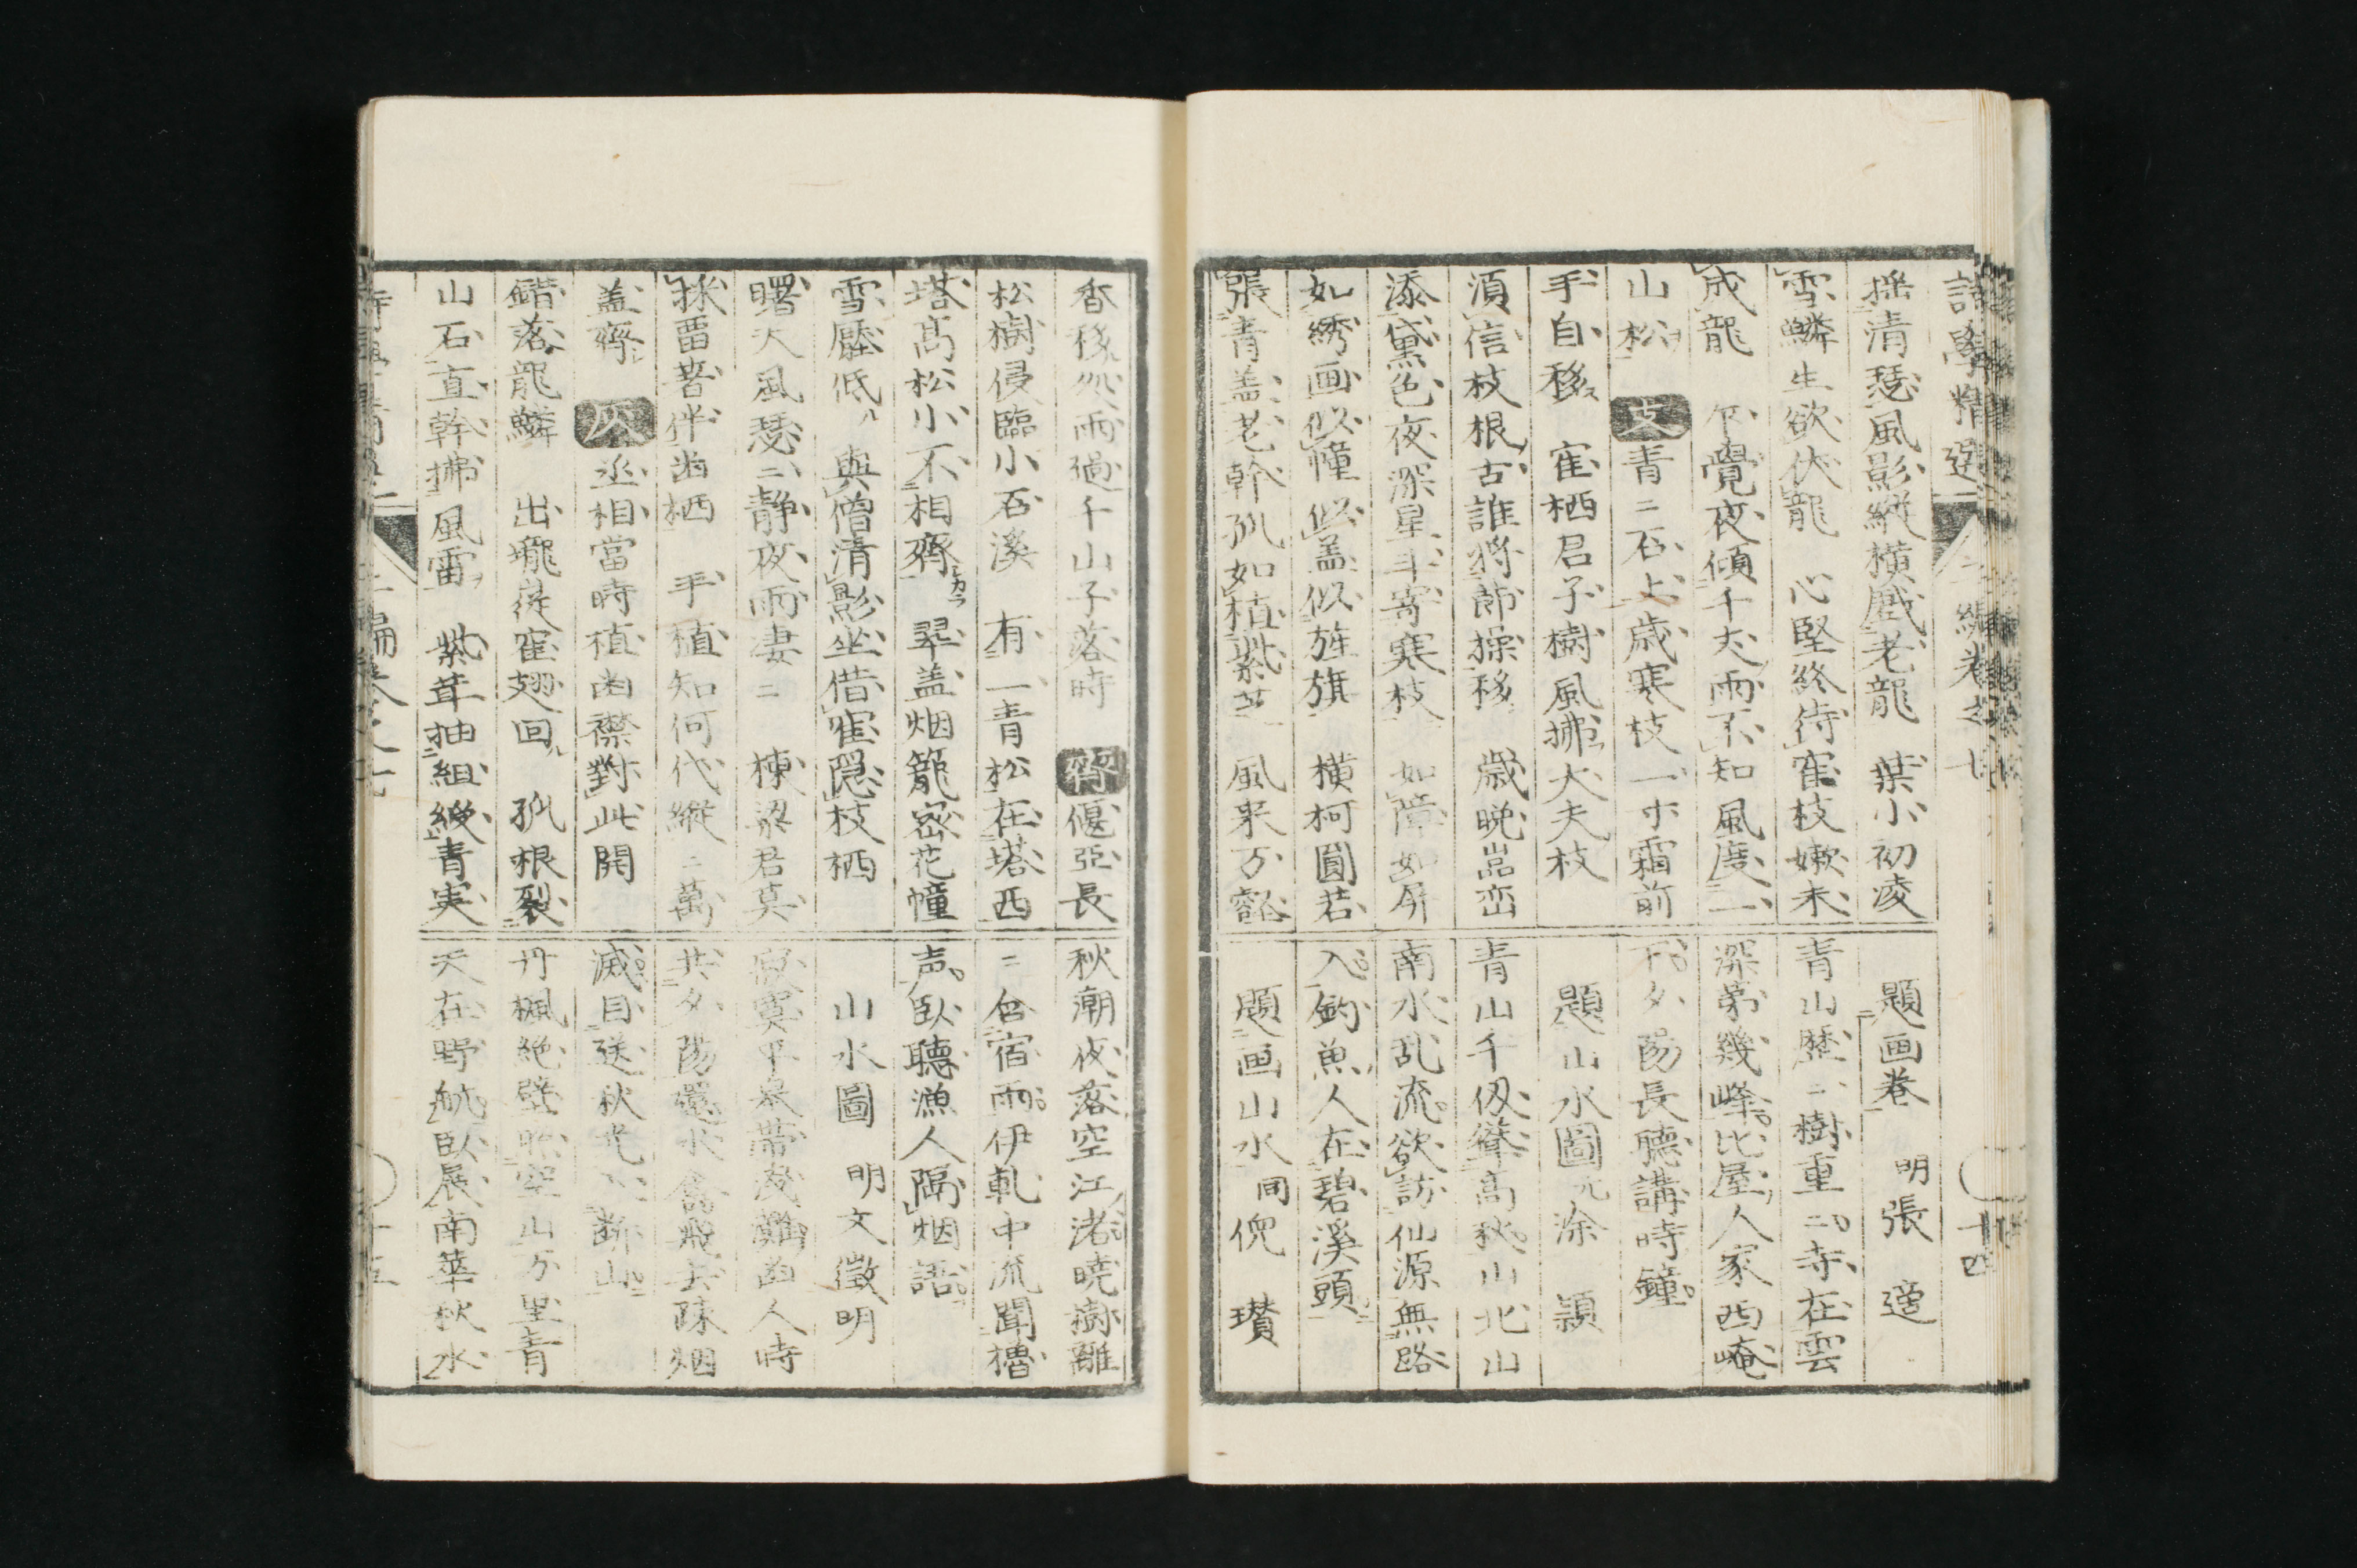 詩學精選 二編卷之七 十四
揺清瑟風影縱橫戲老龍 葉小初凌
雪鱗生欲伏龍 心堅終待寉枝嫩未
成龍 不覺夜傾千丈雨不知風度一
山松 支 青〻石上歳寒枝一寸霜前
手自移 寉栖君子樹風拂大夫枝
須信枝根古誰將節操移 歳晩嵓峦
添黛色夜深星斗寄寒枝 如障如屏
如綉画似幢似盖似旌旗 橫柯圓若
張青盖老幹孤如植紫芝 風来万壑
題画卷 明張 適
青山歴〻樹重〻寺在雲
深第幾峰比屋人家西崦
下夕陽長聽講時鐘
題山水圖 元涂 潁
青山千仭聳高秋山北山
南水乱流欲訪仙源無路
入釣魚人在碧溪頭
題画山水 同倪 瓚
香移処雨過千山子落時 齊 偃亞長
松樹侵臨小石溪 有一青松在塔西
塔髙松小不相齊 翠盖烟籠密花幢
雪壓低 與僧清影坐借寉隠枝栖
曙天風瑟〻静夜雨凄〻 棟梁君莫
採畱著伴幽栖 手植知何代縱〻萬
盖齊 灰 丞相當時植幽襟對此開
錯落龍鱗出壠從寉翅回 孤根裂
山石直幹拂風雷 紫茸抽組綬青実
秋潮夜落空江渚曉樹離
〻含宿雨伊軋中流聞櫓
声臥聽漁人隔烟語
山水圖 明文徴明
寂寞平泉帯茂蘿幽人時
共夕陽還水禽飛去疎烟
滅目送秋光入断山
丹楓絶壁照空山万里青
天在野航臥展南華秋水